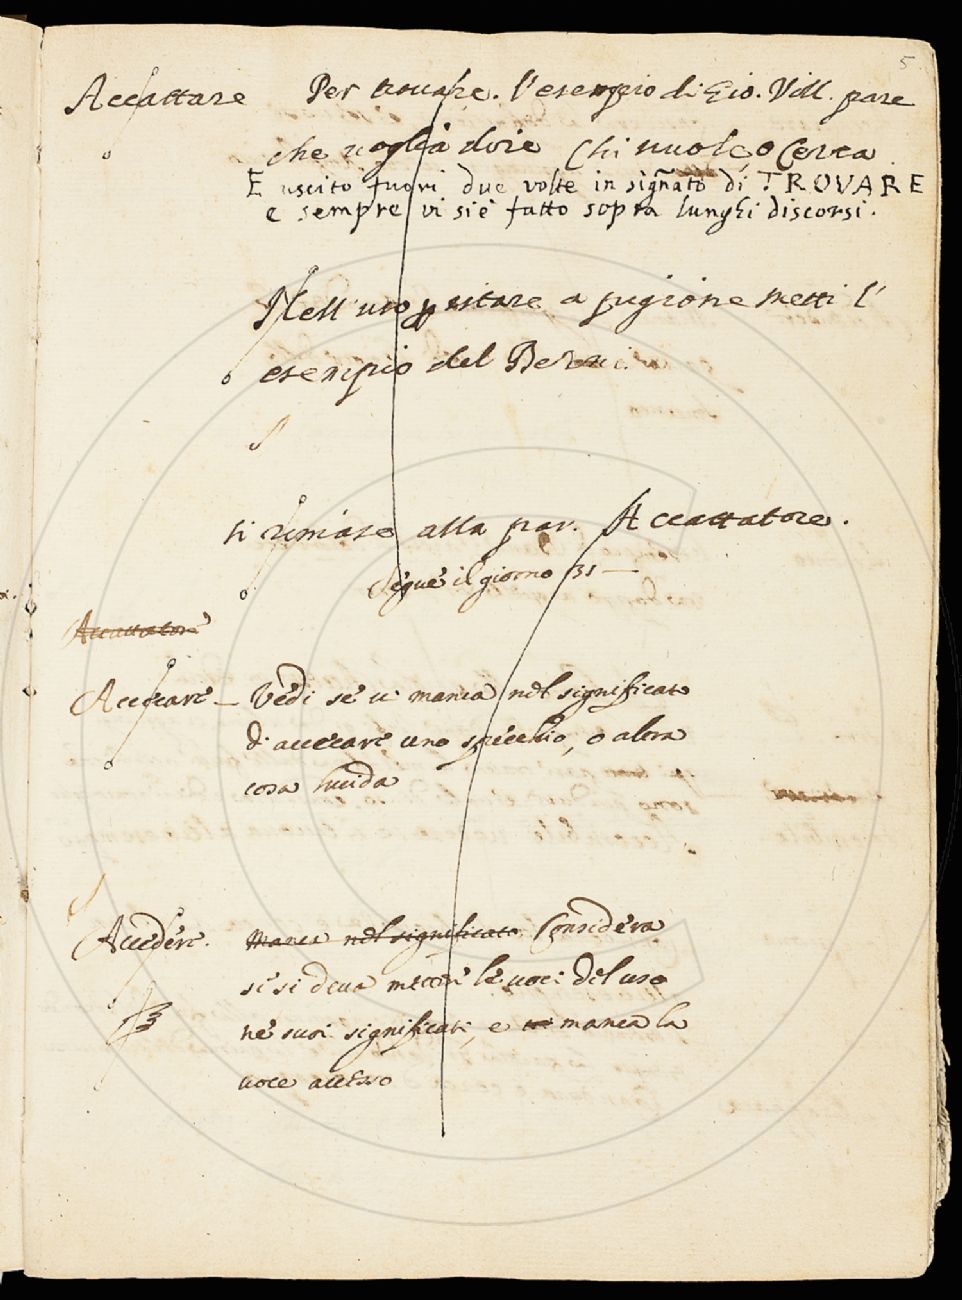 5
Accattare Per trovare. l'esempio di Gio. Vill. pare
che voglia dire Chi vuole, o Cerca.
E uscito fuori due volte in signato di TROVARE
e sempre vi si è fatto sopra lunghi discorsi.
Nell'uso prestare a pigione metti l'
esempio del Berni.
si rimase alla par. Accattatore.
Segue il giorno 31 —
Accattatore
Accecare — Vedi se vi manca nel significato
di accecare uno specchio, o altra
cosa lucida
Accedere. Manca nel significato Considera
se si deva mettere le voci del uso
ne suoi significati, e manca la
voce accesso